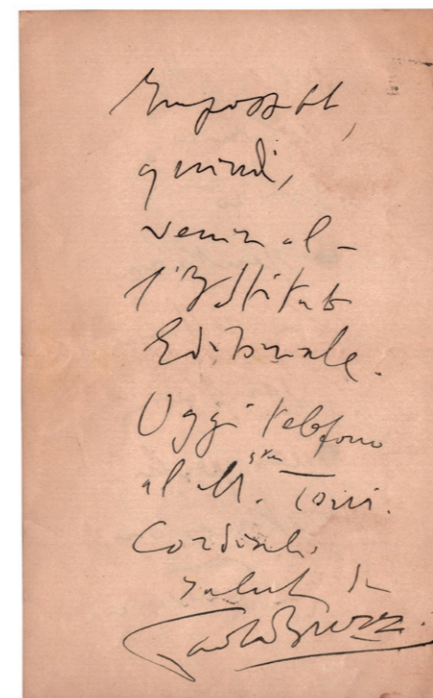 Impossibile,
quindi,
venir al-
l'Istituto
Editoriale.
Oggi telefono
al M.stro
Cordiali
saluti da
Paolo Buzzi.